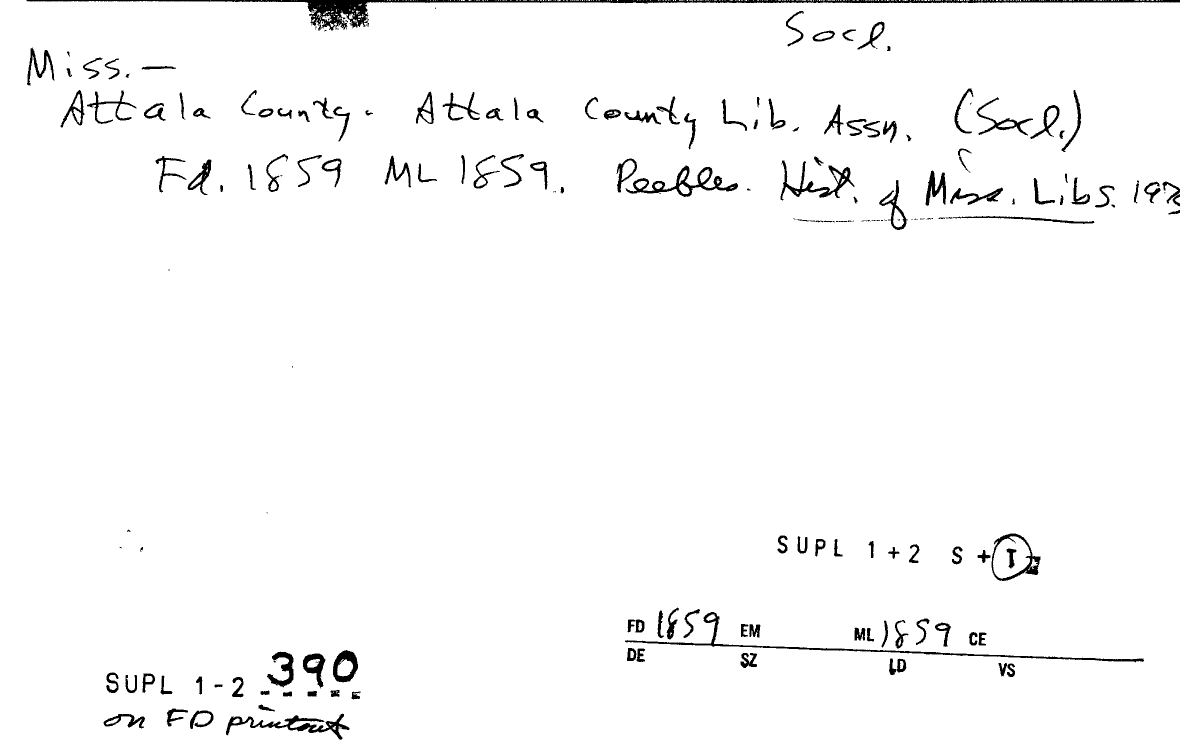 Socl.
Miss.—
Attala County. Attala County Lib. Assn. (Socl.)
Fd. 1859 ML 1859. Peebles. Hist. of Miss. Libs. 197
SUPL 1+2 S+T
FD 1859 EM ML 1859 CE
DE SZ LD VS
SUPL 1-2 390
on FD printout